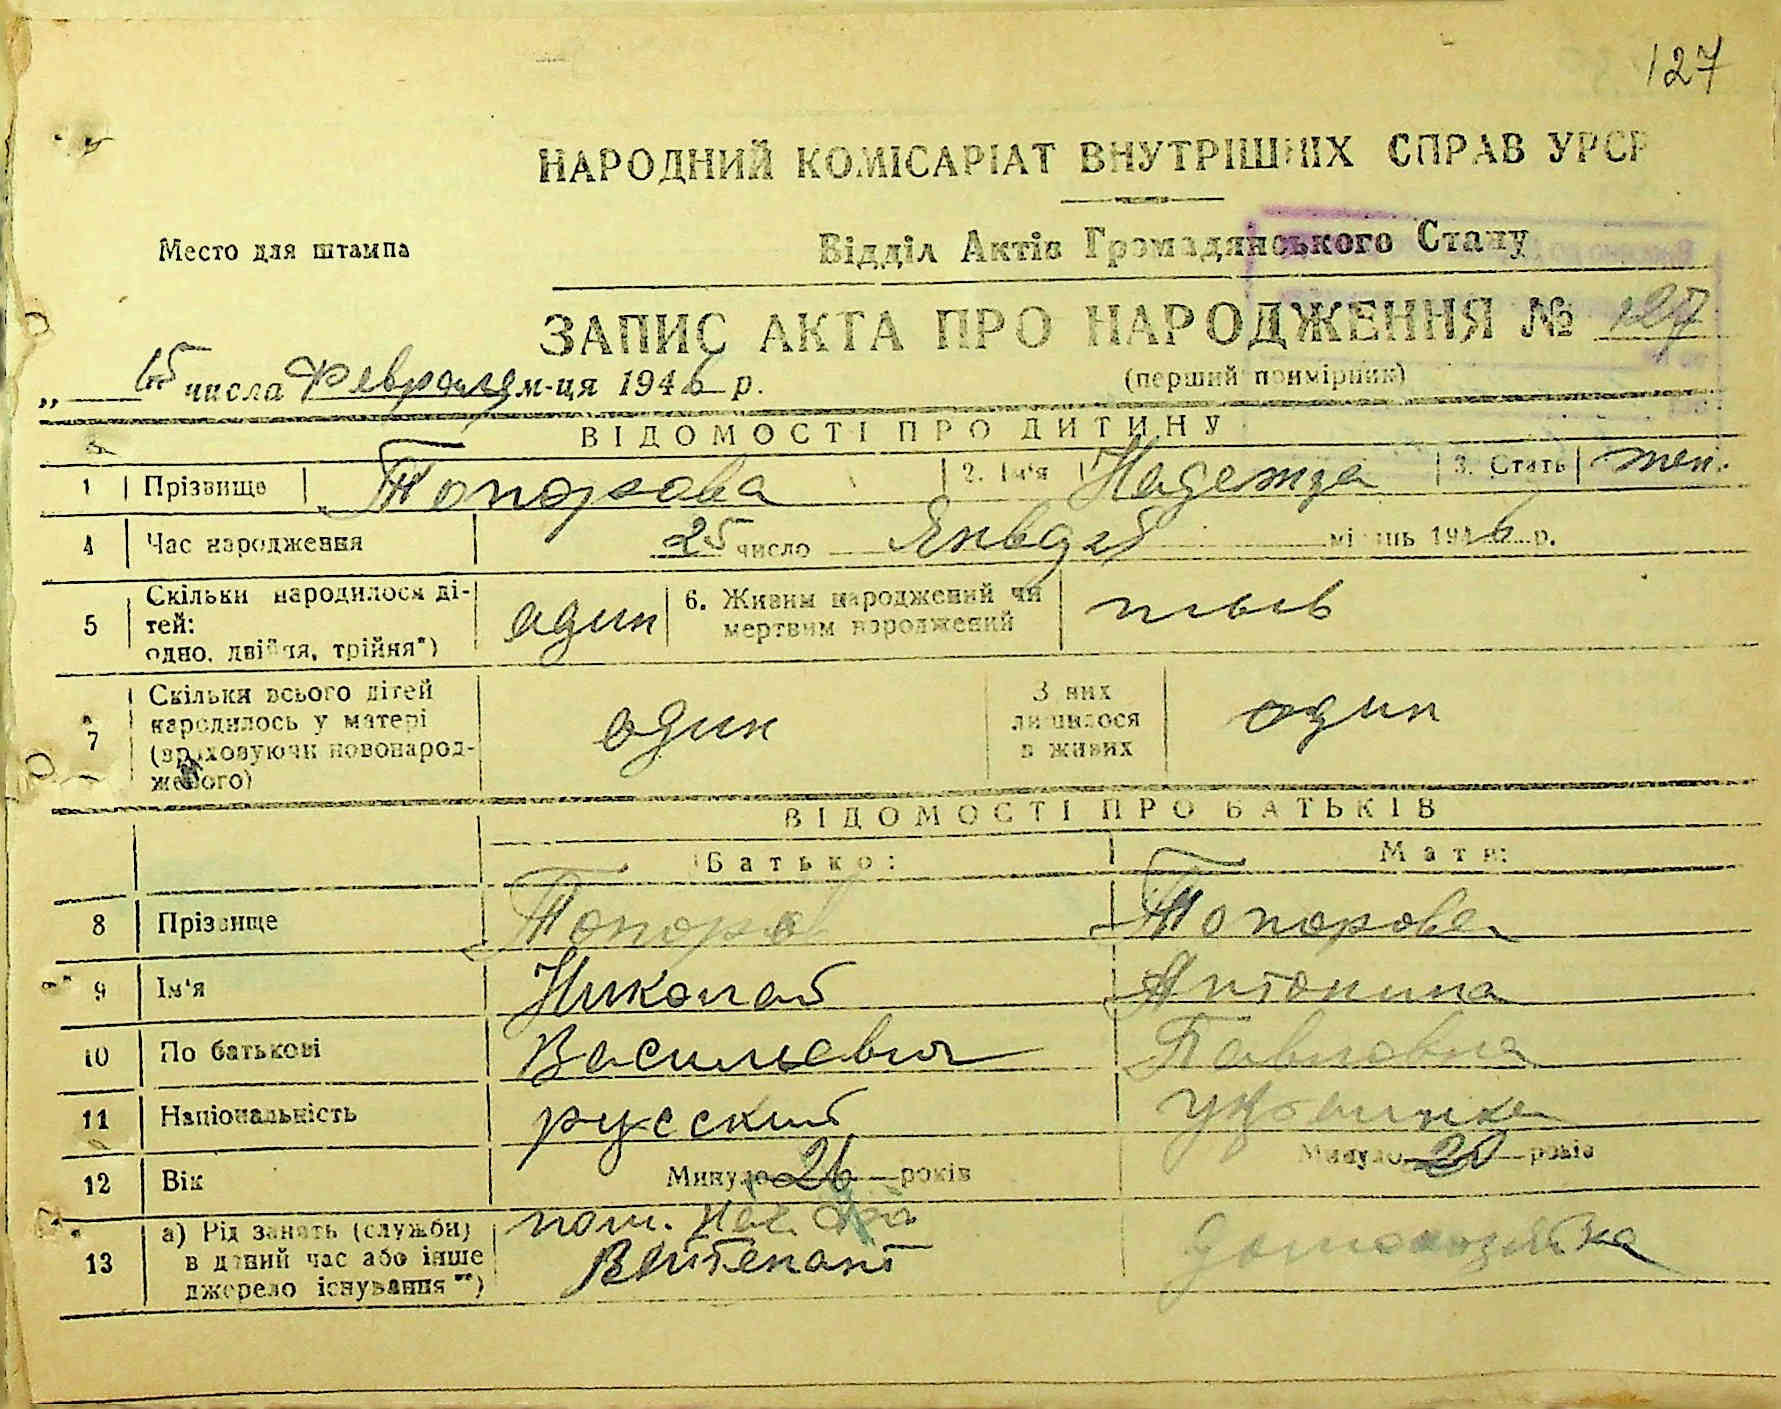 127
НАРОДНИЙ КОМІСАРІАТ ВНУТРІШНІХ СПРАВ УРСР
Место для штампа
Відділ Актів Громадянського Стану
ЗАПИС АКТА ПРО НАРОДЖЕННЯ № 127
„ 15 числа Февраля м-ця 1946 р.
(перший примірник)
ВІДОМОСТІ ПРО ДИТИНУ
1 Прізвище Топорова 2. Ім'я Надежда 3. Стать жен.
4 Час народження 25 число Январь місяць 1946 р.
5 Скільки народилося ді-
тей:
одно, двійня, трійня*) один 6. Живим народжений чи
мертвим народжений
7 Скільки всього дітей
народилось у матері
(враховуючи новонарод-
женого) один З них
лишилося
в живих один
ВІДОМОСТІ ПРО БАТЬКІВ
Батько: Мати:
8 Прізвище Топоров Топорова
9 Ім'я Николай Антонина
10 По батькові Васильевич Павловна
11 Національність русский украинка
12 Вік Минуло 26 років Минуло 20 років
13 а) Рід занять (служби)
в даний час або інше
джерело існування**) пом. Нач. домохозяйка